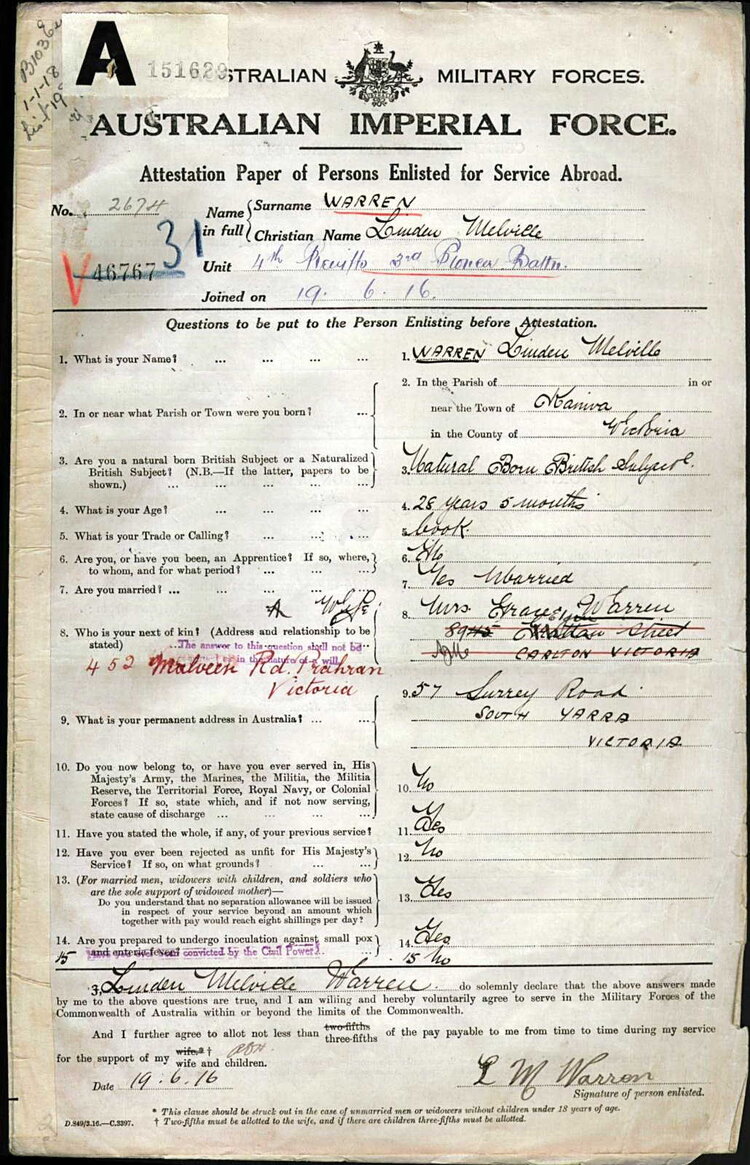 A 151629
B103E
1-1-18
AUSTRALIAN MILITARY FORCES.
AUSTRALIAN IMPERIAL FORCE.
Attestation Paper of Persons Enlisted for Service Abroad.
No. 2674
Name in full { Surname WARREN
Christian Name Linden Melville
31
46767
Unit 4th 3rd Pioneer Battn.
Joined on 19. 6. 16.
Questions to be put to the Person Enlisting before Attestation.
1. What is your Name? ... ... ... ... 1. WARREN Linden Melville
2. In or near what Parish or Town were you born? ... 2. In the Parish of in or
near the Town of Kaniva
in the County of Victoria
3. Are you a natural born British Subject or a Naturalized
British Subject? (N.B.—If the latter, papers to be
shown.) ... ... ... ... ... 3. Natural Born British Subject.
4. What is your Age? ... ... ... ... 4. 28 years 5 months
5. What is your Trade or Calling? ... ... ... 5. Cook
6. Are you, or have you been, an Apprentice? If so, where,
to whom, and for what period? ... ... ... 6. No
7. Are you married? ... ... ... ... ... 7. Yes Married
Wife
8. Who is your next of kin? (Address and relationship to be
stated) 8. Mrs Warren
Street
CARLTON VICTORIA
The answer to this question shall not be
in the nature of a will
452 Malvern Rd. Prahran
Victoria
9. What is your permanent address in Australia? ... ... 9. 57 Surrey Road
SOUTH YARRA
VICTORIA
10. Do you now belong to, or have you ever served in, His
Majesty's Army, the Marines, the Militia, the Militia
Reserve, the Territorial Force, Royal Navy, or Colonial
Forces? If so, state which, and if not now serving,
state cause of discharge ... ... ... ... 10. No
11. Have you stated the whole, if any, of your previous service? 11. Yes
12. Have you ever been rejected as unfit for His Majesty's
Service? If so, on what grounds? ... ... 12. No
13. (For married men, widowers with children, and soldiers who
are the sole support of widowed mother)—
Do you understand that no separation allowance will be issued
in respect of your service beyond an amount which
together with pay would reach eight shillings per day? 13. Yes
14. Are you prepared to undergo inoculation against small pox
and enteric fever? 14. Yes
15 convicted by the Civil Power. 15 No
I, Linden Melville Warren do solemnly declare that the above answers made
by me to the above questions are true, and I am willing and hereby voluntarily agree to serve in the Military Forces of the
Commonwealth of Australia within or beyond the limits of the Commonwealth.
And I further agree to allot not less than two-fifths three-fifths of the pay payable to me from time to time during my service
for the support of my wife.* † wife and children.
Date 19.6.16 L M Warren
Signature of person enlisted.
* This clause should be struck out in the case of unmarried men or widowers without children under 18 years of age.
D.849/3.16.—C.3397. † Two-fifths must be allotted to the wife, and if there are children three-fifths must be allotted.